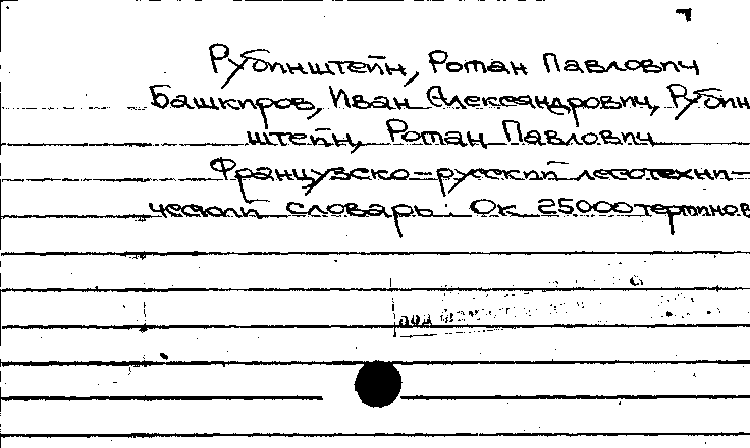 Рубинштейн, Роман Павлович
Башкиров, Иван Александрович, Рубин
штейн, Роман Павлович
Французско-русский лесотехни-
ческий словарь: Ок 25000 терминов
под